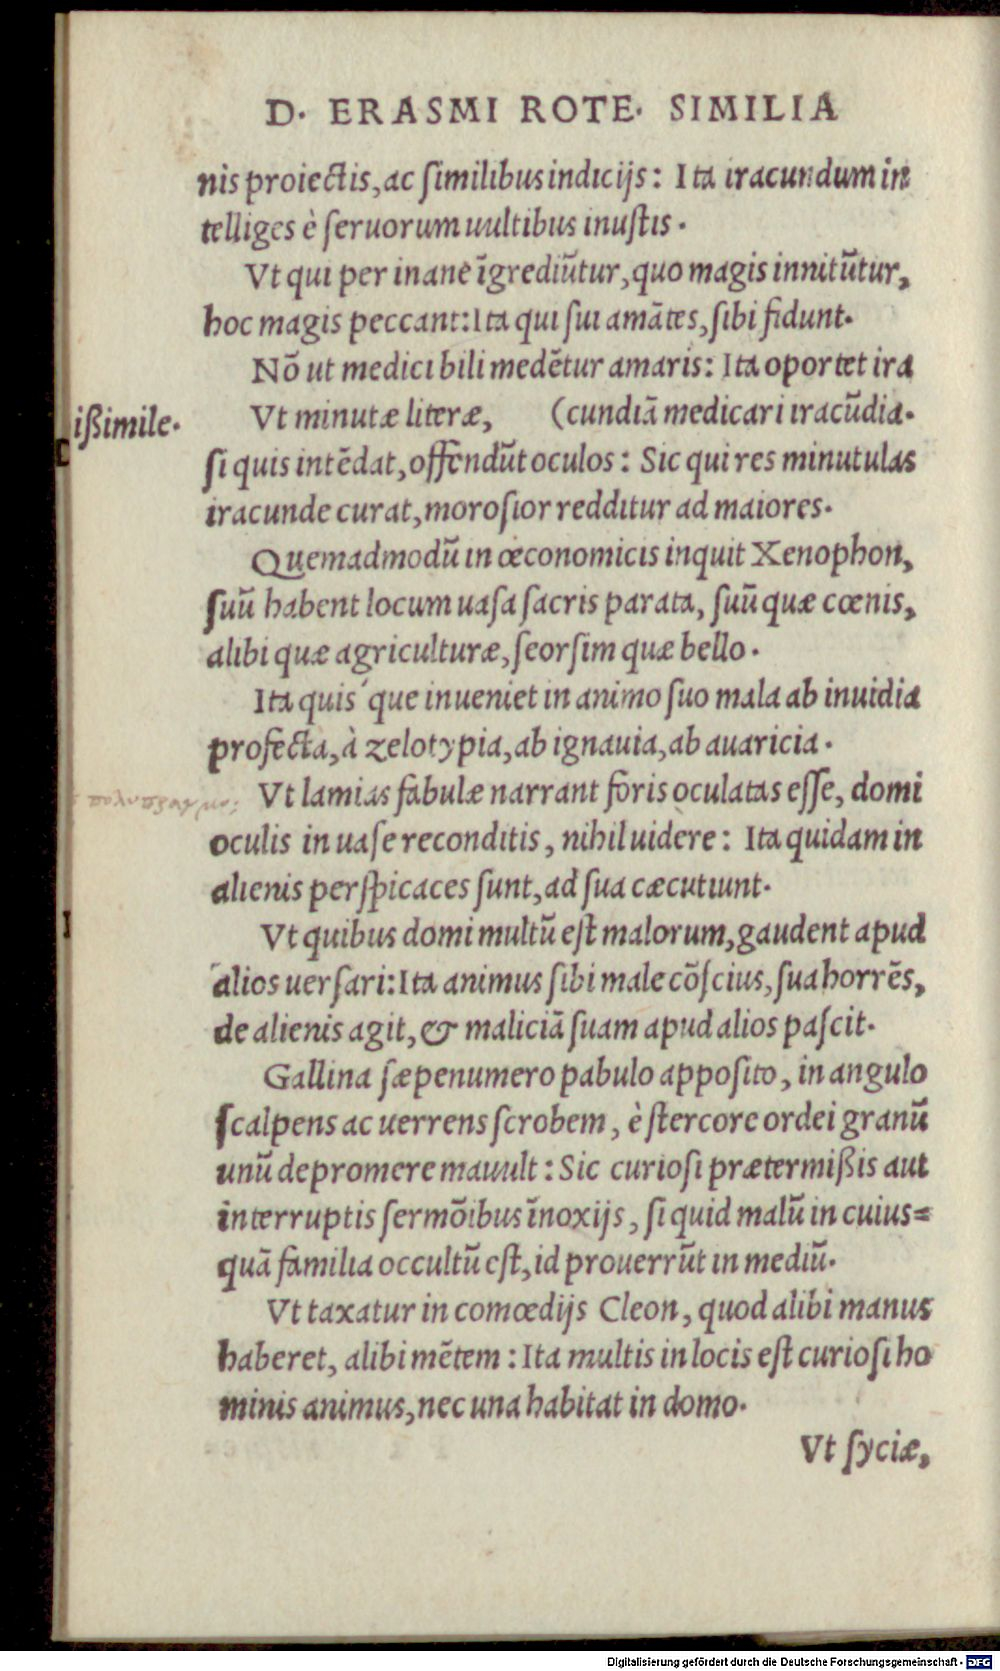 D. ERASMI ROTE. SIMILIA
nis proiectis, ac ſimilibus indicijs: Ita iracundum in
telliges è ſeruorum uultibus inuſtis.
Vt qui per inane ĩgrediũtur, quo magis innitũtur,
hoc magis peccant: Ita qui ſui amãtes, ſibi fidunt.
Nõ ut medici bili medẽtur amaris: Ita oportet ira
Vt minutæ literæ, (cundiã medicari iracũdia.
ißimile.
ſi quis intẽdat, offendũt oculos: Sic qui res minutulas
iracunde curat, moroſior redditur ad maiores.
Quemadmodũ in œconomicis inquit Xenophon,
ſuũ habent locum uaſa ſacris parata, ſuũ quæ cœnis,
alibi quæ agriculturæ, ſeorſim quæ bello.
Ita quiſ que inueniet in animo ſuo mala ab inuidia
profecta, à zelotypia, ab ignauia, ab auaricia.
Vt lamias fabulæ narrant foris oculatas eſſe, domi
oculis in uaſe reconditis, nihil uidere: Ita quidam in
alienis perſpicaces ſunt, ad ſua cæcutiunt.
Vt quibus domi multũ eſt malorum, gaudent apud
alios uerſari: Ita animus ſibi male cõſcius, ſua horrẽs,
de alienis agit, & maliciã ſuam apud alios paſcit.
Gallina ſæpenumero pabulo appoſito, in angulo
ſcalpens ac uerrens ſcrobem, è ſtercore ordei granũ
unũ depromere mauult: Sic curioſi prætermißis aut
interruptis ſermõibus ĩnoxijs, ſi quid malũ in cuius=
quã familia occultũ eſt, id prouerrũt in mediũ.
Vt taxatur in comœdijs Cleon, quod alibi manus
haberet, alibi mẽtem: Ita multis in locis eſt curioſi ho
minis animus, nec una habitat in domo.
Vt ſyciæ,
Digitalisierung gefördert durch die Deutsche Forschungsgemeinschaft - DFG